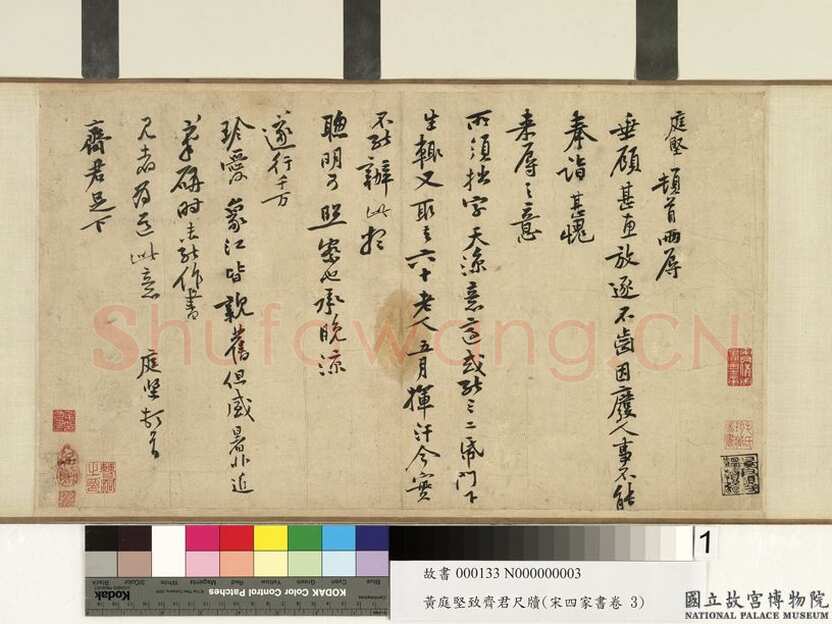 庭堅頓首兩辱
垂顧甚惠放逐不齒因廢人事不能
奉詣甚愧
来辱之意
所須拙字天涼意適或能三二紙門下
生輒又取去六十老人五月揮汗今實
不能辦此想
聰明可照察也承晚涼
遂行千万
珍愛象江皆親舊但盛暑非近
筆研時未能作書
見者為道此意 庭堅頓首
齊君足下
Shufawang.CN
Black
3/Color
White
Magenta
Red
Yellow
Green
Cyan
Blue
Kodak
KODAK Color Control Patches
1
故書 000133 N000000003
黃庭堅致齊君尺牘(宋四家書卷 3)
國立故宮博物院
NATIONAL PALACE MUSEUM